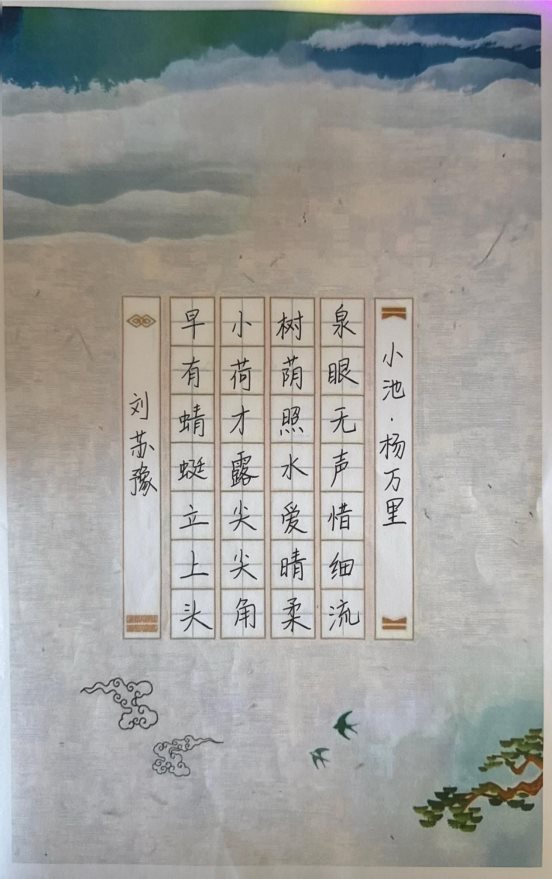 小池·杨万里
泉眼无声惜细流
树荫照水爱晴柔
小荷才露尖尖角
早有蜻蜓立上头
刘苏豫